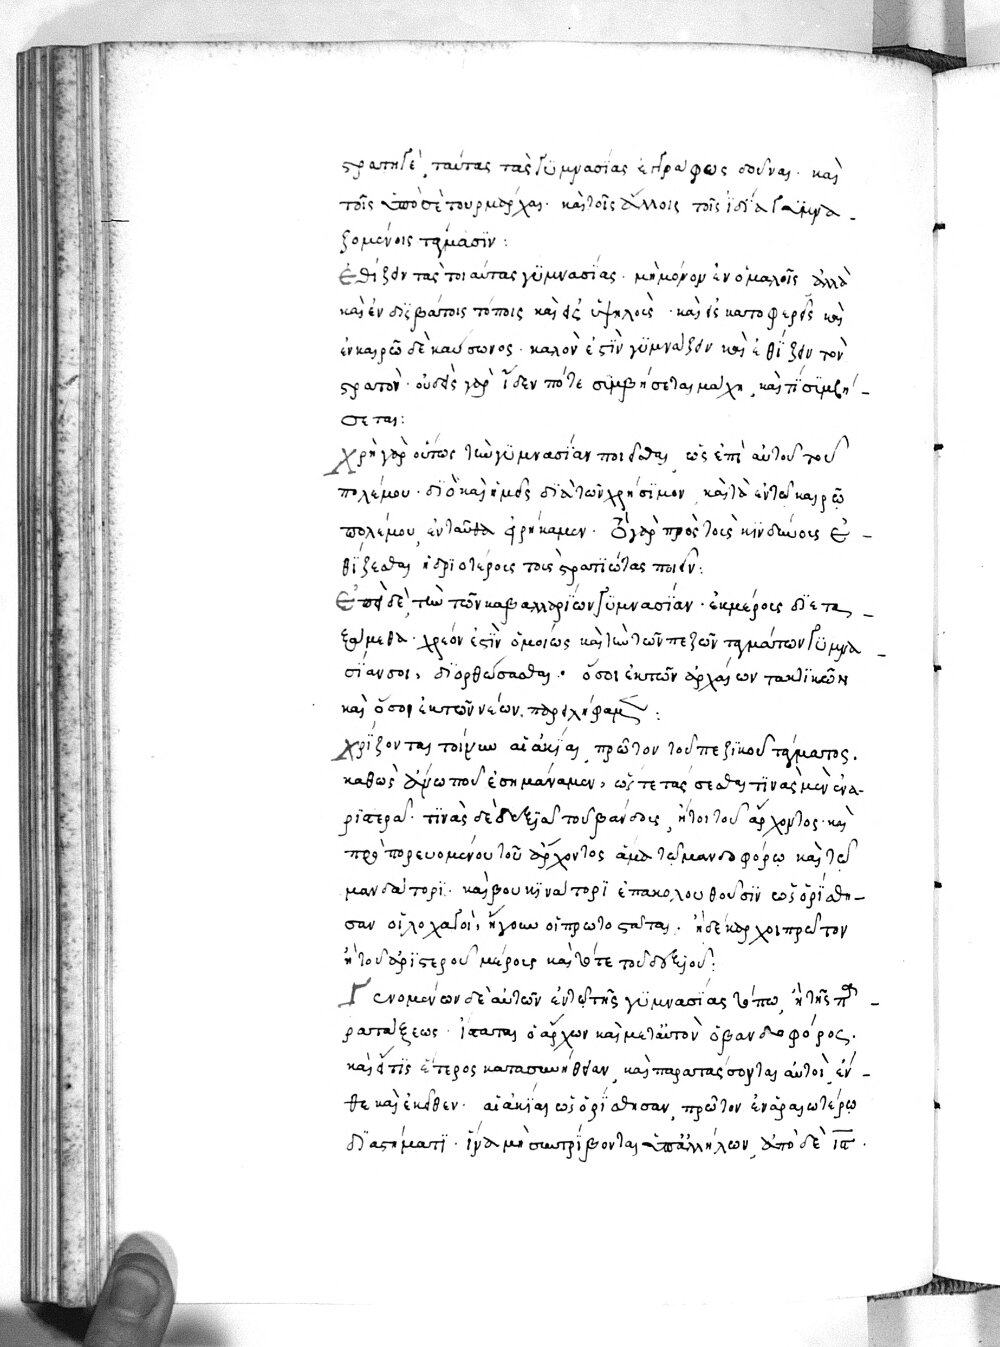 στρατηγὲ, ταύτας τὰς γϋμνασίας ἐγγράφως δοῦναι· καὶ
τοῖς ὑπὸ σὲ τουρμάρχαι· καὶ τοῖς ἄλλοις τοῖς ϊδία γϋμνα
ζομένοις ταγμασϊν:
ἐθίζειν τὰς τοιαύτας γϋμνασίας· μὴ μόνον ἐν ὁμαλοῖς ἀλλὰ
καὶ ἐν δϋσβάτοις τόποις καὶ εἰς ὑψηλοὺς· καὶ εἰς κατωφερεῖς καὶ
ἐν καιρῶ δὲ καύσωνος· καλὸν ἐστϊν γϋμνάζειν καὶ ἐθίζειν τὸν
στρατὸν· οὐδεὶς γὰρ οἶδεν πότε συμβήσεται μάχη, καὶ τί συμβή-
σεται:
Χρὴ γὰρ οὕτως τὴν γϋμνασίαν ποιεῖσθαι, ὡς ἐπὶ αὐτοῦ τοῦ
πολέμου· διὸ καὶ ἡμεῖς διὰ τὸ χρήσϊμον, καὶ τὰ ἐν τῶ καιρῶ
πολέμου, ἐνταῦθα εἰρήκαμεν· ὃ γὰρ πρὸς τοὺς κϊνδύνους ἐ-
θίζεσθαι ἀνδριοτέρους τοὺς στρατιώτας ποιεῖν:
Ἐπεὶ δὲ, τὴν τῶν καβαλλαρίων γϋμνασίαν· ἐκ μέρους διετα-
ξάμεθα· χρεόν ἐστϊν ὁμοίως καὶ τὴν τῶν πεζῶν ταγμάτων γϋμνα-
σίαν σοι, διορθώσασθαι· ὅσοι ἐκ τῶν ἀρχαίων τακτϊκῶν
καὶ ὅσοι ἐκ τῶν νέων, παρειλήφαμεν:
Χρϊζονται τοίνυν αἱ ἀκίαι, πρῶτον τοῦ πεζϊκοῦ τάγματος.
καθὼς ἄνω που ἐσημάναμεν, ὥστε τάσσεσθαι τϊνὰς μὲν ἐν ἀ-
ρϊστερᾶ· τϊνὰς δὲ δεξιᾶ τοῦ βάνδους, ἤτοι τοῦ ἄρχοντος· καὶ
προπορευομένου τοῦ ἄρχοντος ἅμα τῶ μανδοφόρω καὶ τῶ
μανδάτορϊ· καὶ βουκϊνάτορϊ ἐπακολουθοῦσϊν ὡς ὁρϊσθη-
σαν οἱ λοχαγοὶ, ἤγουν οἱ πρωτοστάται· ἢ δεκάρχοι πρῶτον
ἢ τοῦ ἀρϊστεροῦ μέρους καὶ τότε τοῦ δεξιοῦ:
Γενομένων δὲ αὐτῶν ἐν τῶ τῆς γϋμνασίας τόπω, ἢ τῆς πα-
ρατάξεως· ἵσταται ὁ ἄρχων καὶ μετ αὐτὸν ὁ βανδοφόρος.
καὶ εἴ τϊς ἕτερος κατασυνήθειαν, καὶ παρατάσσονται αὐτοὶ, ἔν-
θε καὶ ἐκεῖθεν· αἱ ἀκίαι ὡς ὁρίσθησαν, πρῶτον ἐν ἀραιωτέρω
διαστήματϊ· ἵνα μὴ συντρίβονται ὑπ ἀλλήλων, ἀπὸ δὲ ιπ·